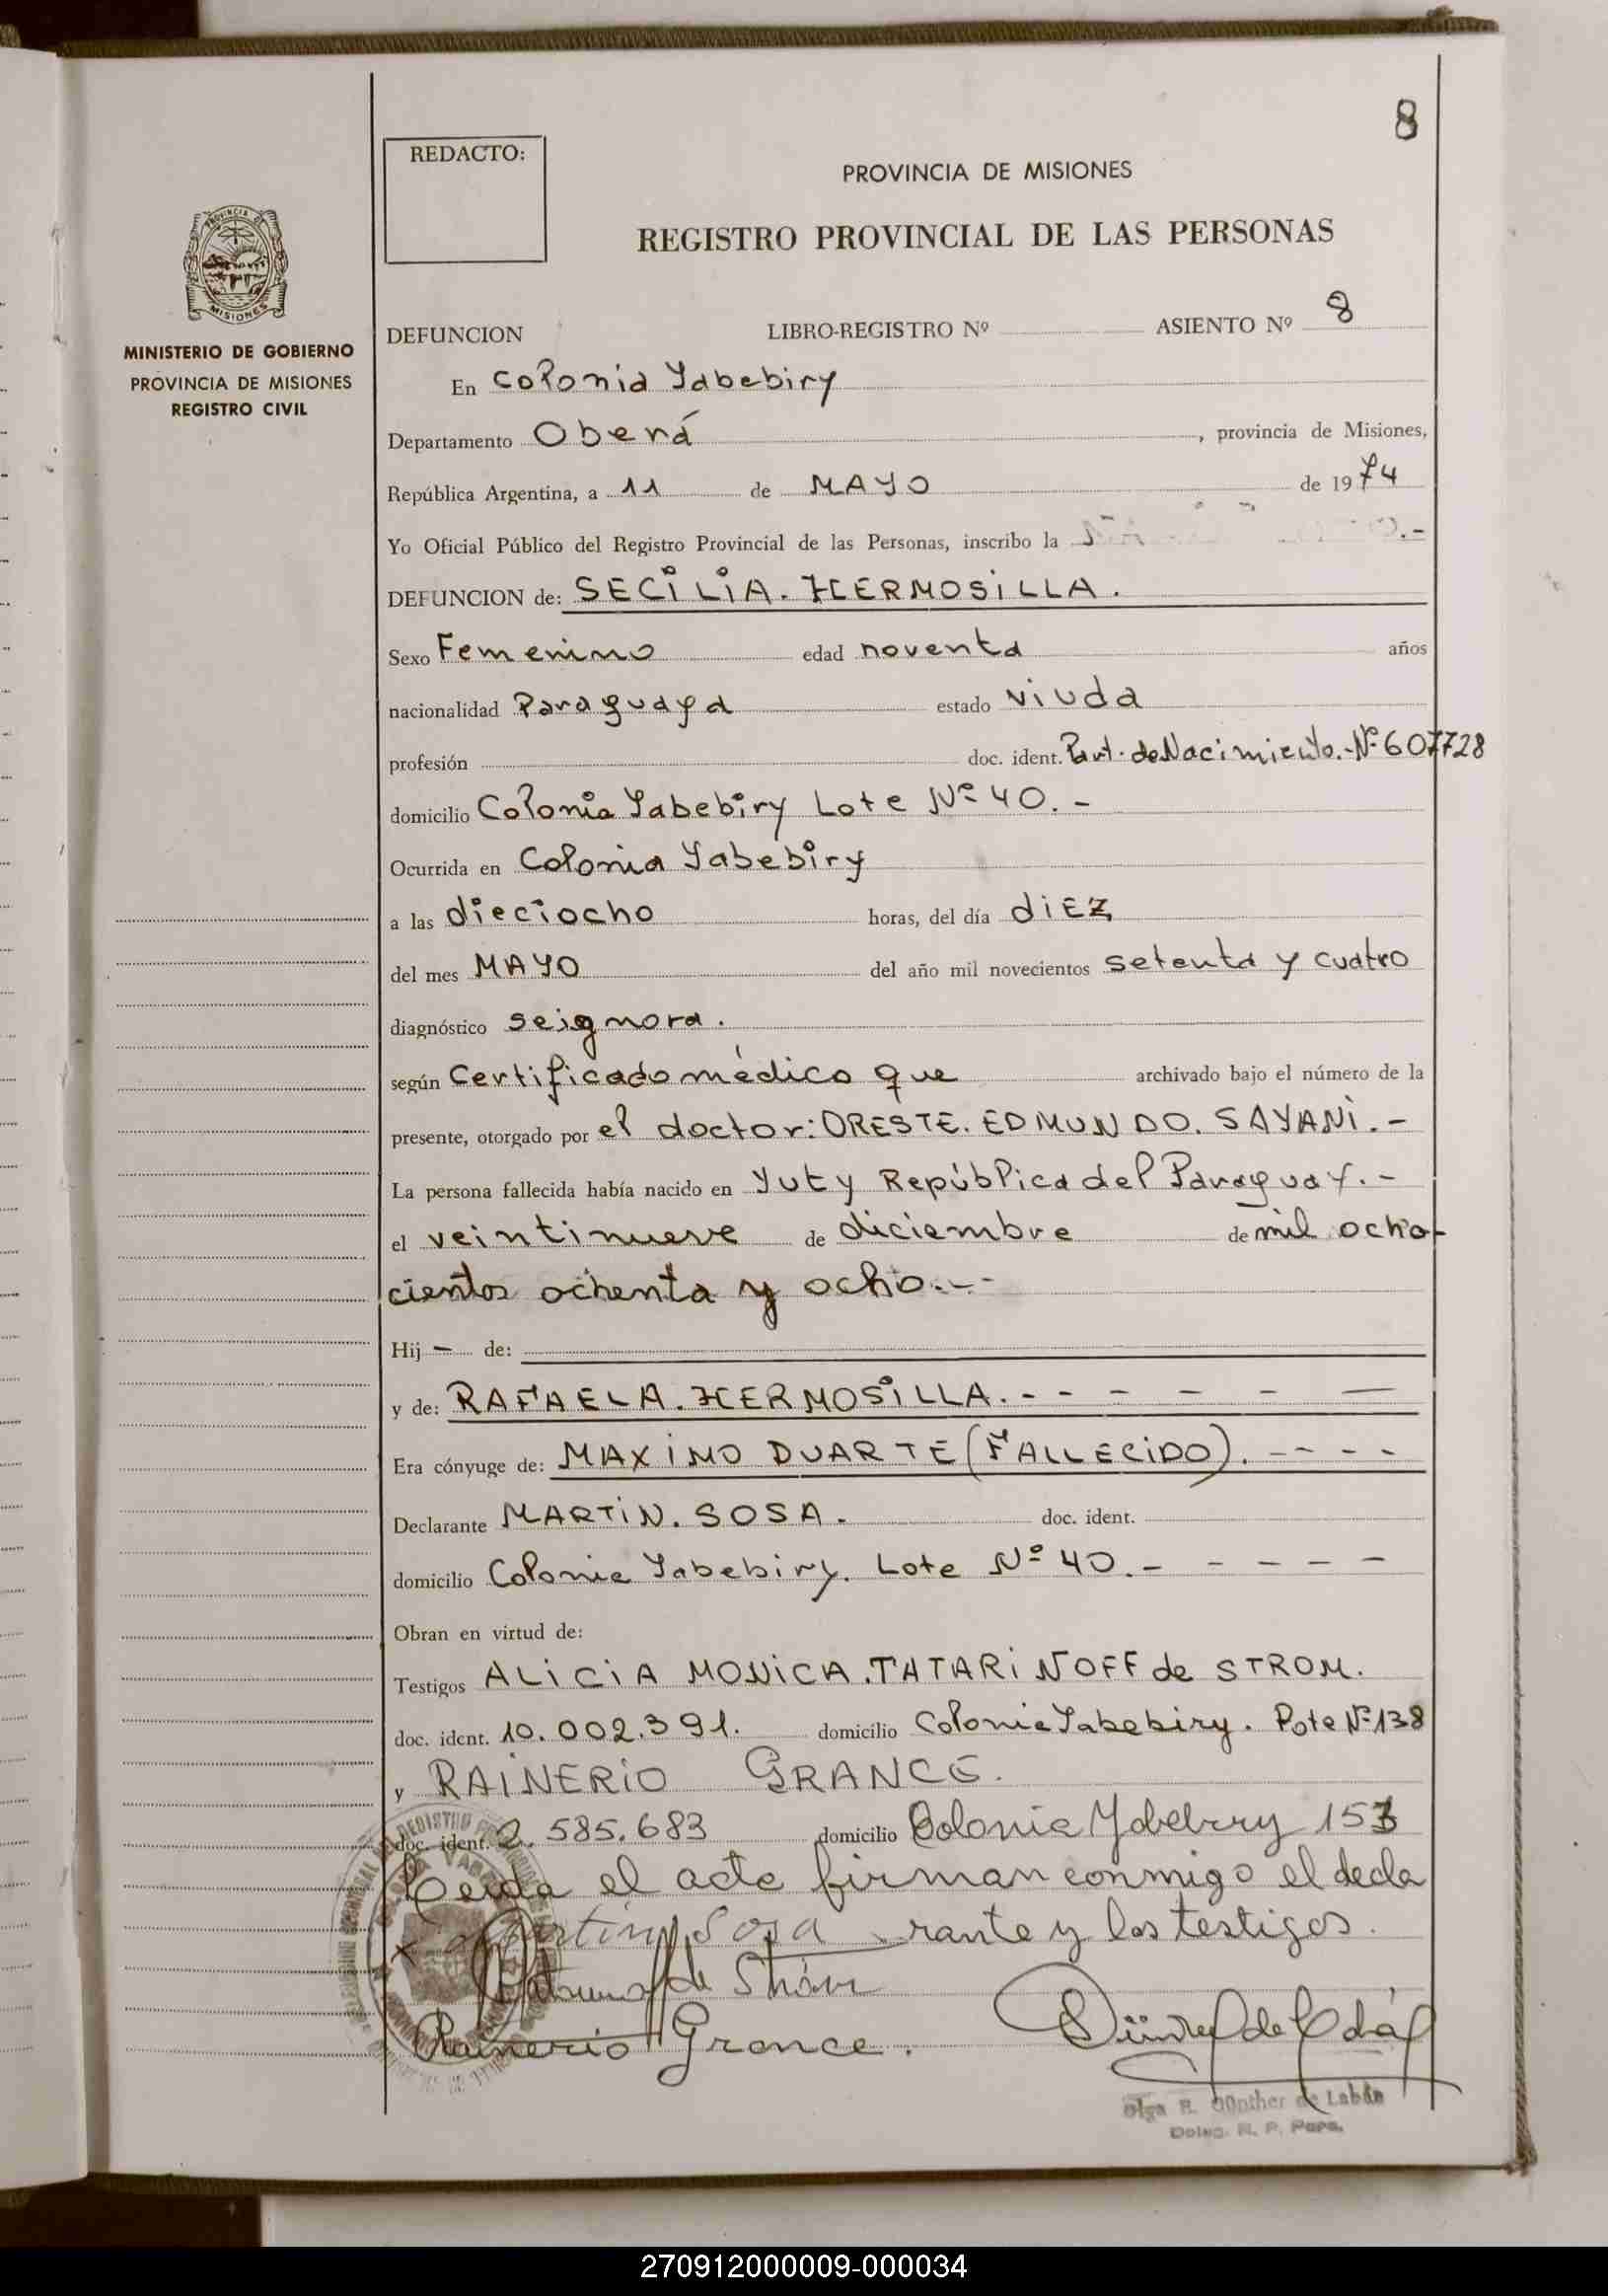 8
REDACTO:
PROVINCIA DE MISIONES
REGISTRO PROVINCIAL DE LAS PERSONAS
PROVINCIA DE
MISIONES
MINISTERIO DE GOBIERNO
PROVINCIA DE MISIONES
REGISTRO CIVIL
DEFUNCION LIBRO-REGISTRO Nº ASIENTO Nº 8
En Colonia Yabebiry
Departamento Oberá, provincia de Misiones,
República Argentina, a 11 de MAYO de 1974
Yo Oficial Público del Registro Provincial de las Personas, inscribo la
DEFUNCION de: SECILIA. HERMOSILLA.
Sexo Femenino edad noventa años
nacionalidad Paraguaya estado viuda
profesión doc. ident. Part. de Nacimiento.-Nº 607728
domicilio Colonia Yabebiry Lote Nº 40.-
Ocurrida en Colonia Yabebiry
a las dieciocho horas, del día diez
del mes MAYO del año mil novecientos setenta y cuatro
diagnóstico seignora.
según Certificado médico que archivado bajo el número de la
presente, otorgado por el doctor: ORESTE. EDMUNDO. SAYANI.-
La persona fallecida había nacido en Yuty República del Paraguay.-
el veintinueve de diciembre de mil ocho-
cientos ochenta y ocho.--
Hij - de:
y de: RAFAELA. HERMOSILLA. - - - - - -
Era cónyuge de: MAXIMO DUARTE (FALLECIDO). - - - -
Declarante MARTIN. SOSA. doc. ident.
domicilio Colonia Yabebiry. Lote Nº 40. - - - - -
Obran en virtud de:
Testigos ALICIA MONICA. TATARINOFF de STROM.
doc. ident. 10.002.391. domicilio Colonia Yabebiry. Lote Nº 138
y RAINERIO GRANCE.
doc. ident. 2.585.683 domicilio Colonia Yabebiry 153
Leida el acta firman conmigo el decla
Martin Sosa rante y los testigos.
de Strom
Rainerio Grance.
Olga R. Günther de Labán
Deleg. R. P. Pers.
270912000009-000034